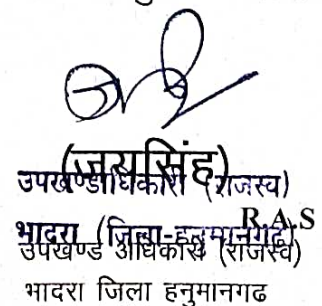 (जयसिंह)
उपखण्डाधिकारी (राजस्व)
R.A.S
भादरा (जिला-हनुमानगढ)
उपखण्ड अधिकारी (राजस्व)
भादरा जिला हनुमानगढ